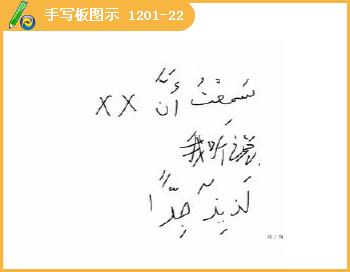 手写板图示 1201-22
سَمِعْتُ أَنَّ XX
我听说
لَذِيذٌ جِدًّا